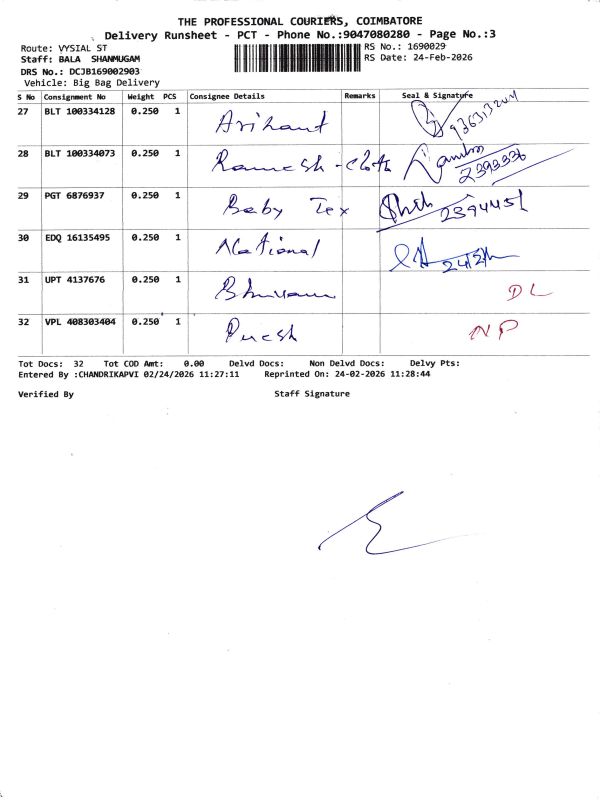 THE PROFESSIONAL COURIERS, COIMBATORE
Delivery Runsheet - PCT - Phone No.:9047080280 - Page No.:3
Route: VYSIAL ST
RS No.: 1690029
Staff: BALA SHANMUGAM
RS Date: 24-Feb-2026
DRS No.: DCJB169002903
Vehicle: Big Bag Delivery
S No Consignment No Weight PCS Consignee Details Remarks Seal & Signature
27 BLT 100334128 0.250 1 Arihant
28 BLT 100334073 0.250 1 Ramesh - cloth 2393336
29 PGT 6876937 0.250 1 Baby Tex 2394451
30 EDQ 16135495 0.250 1 National
31 UPT 4137676 0.250 1 DL
32 VPL 408303404 0.250 1 NP
Tot Docs: 32 Tot COD Amt: 0.00 Delvd Docs: Non Delvd Docs: Delvy Pts:
Entered By :CHANDRIKAPVI 02/24/2026 11:27:11 Reprinted On: 24-02-2026 11:28:44
Verified By Staff Signature